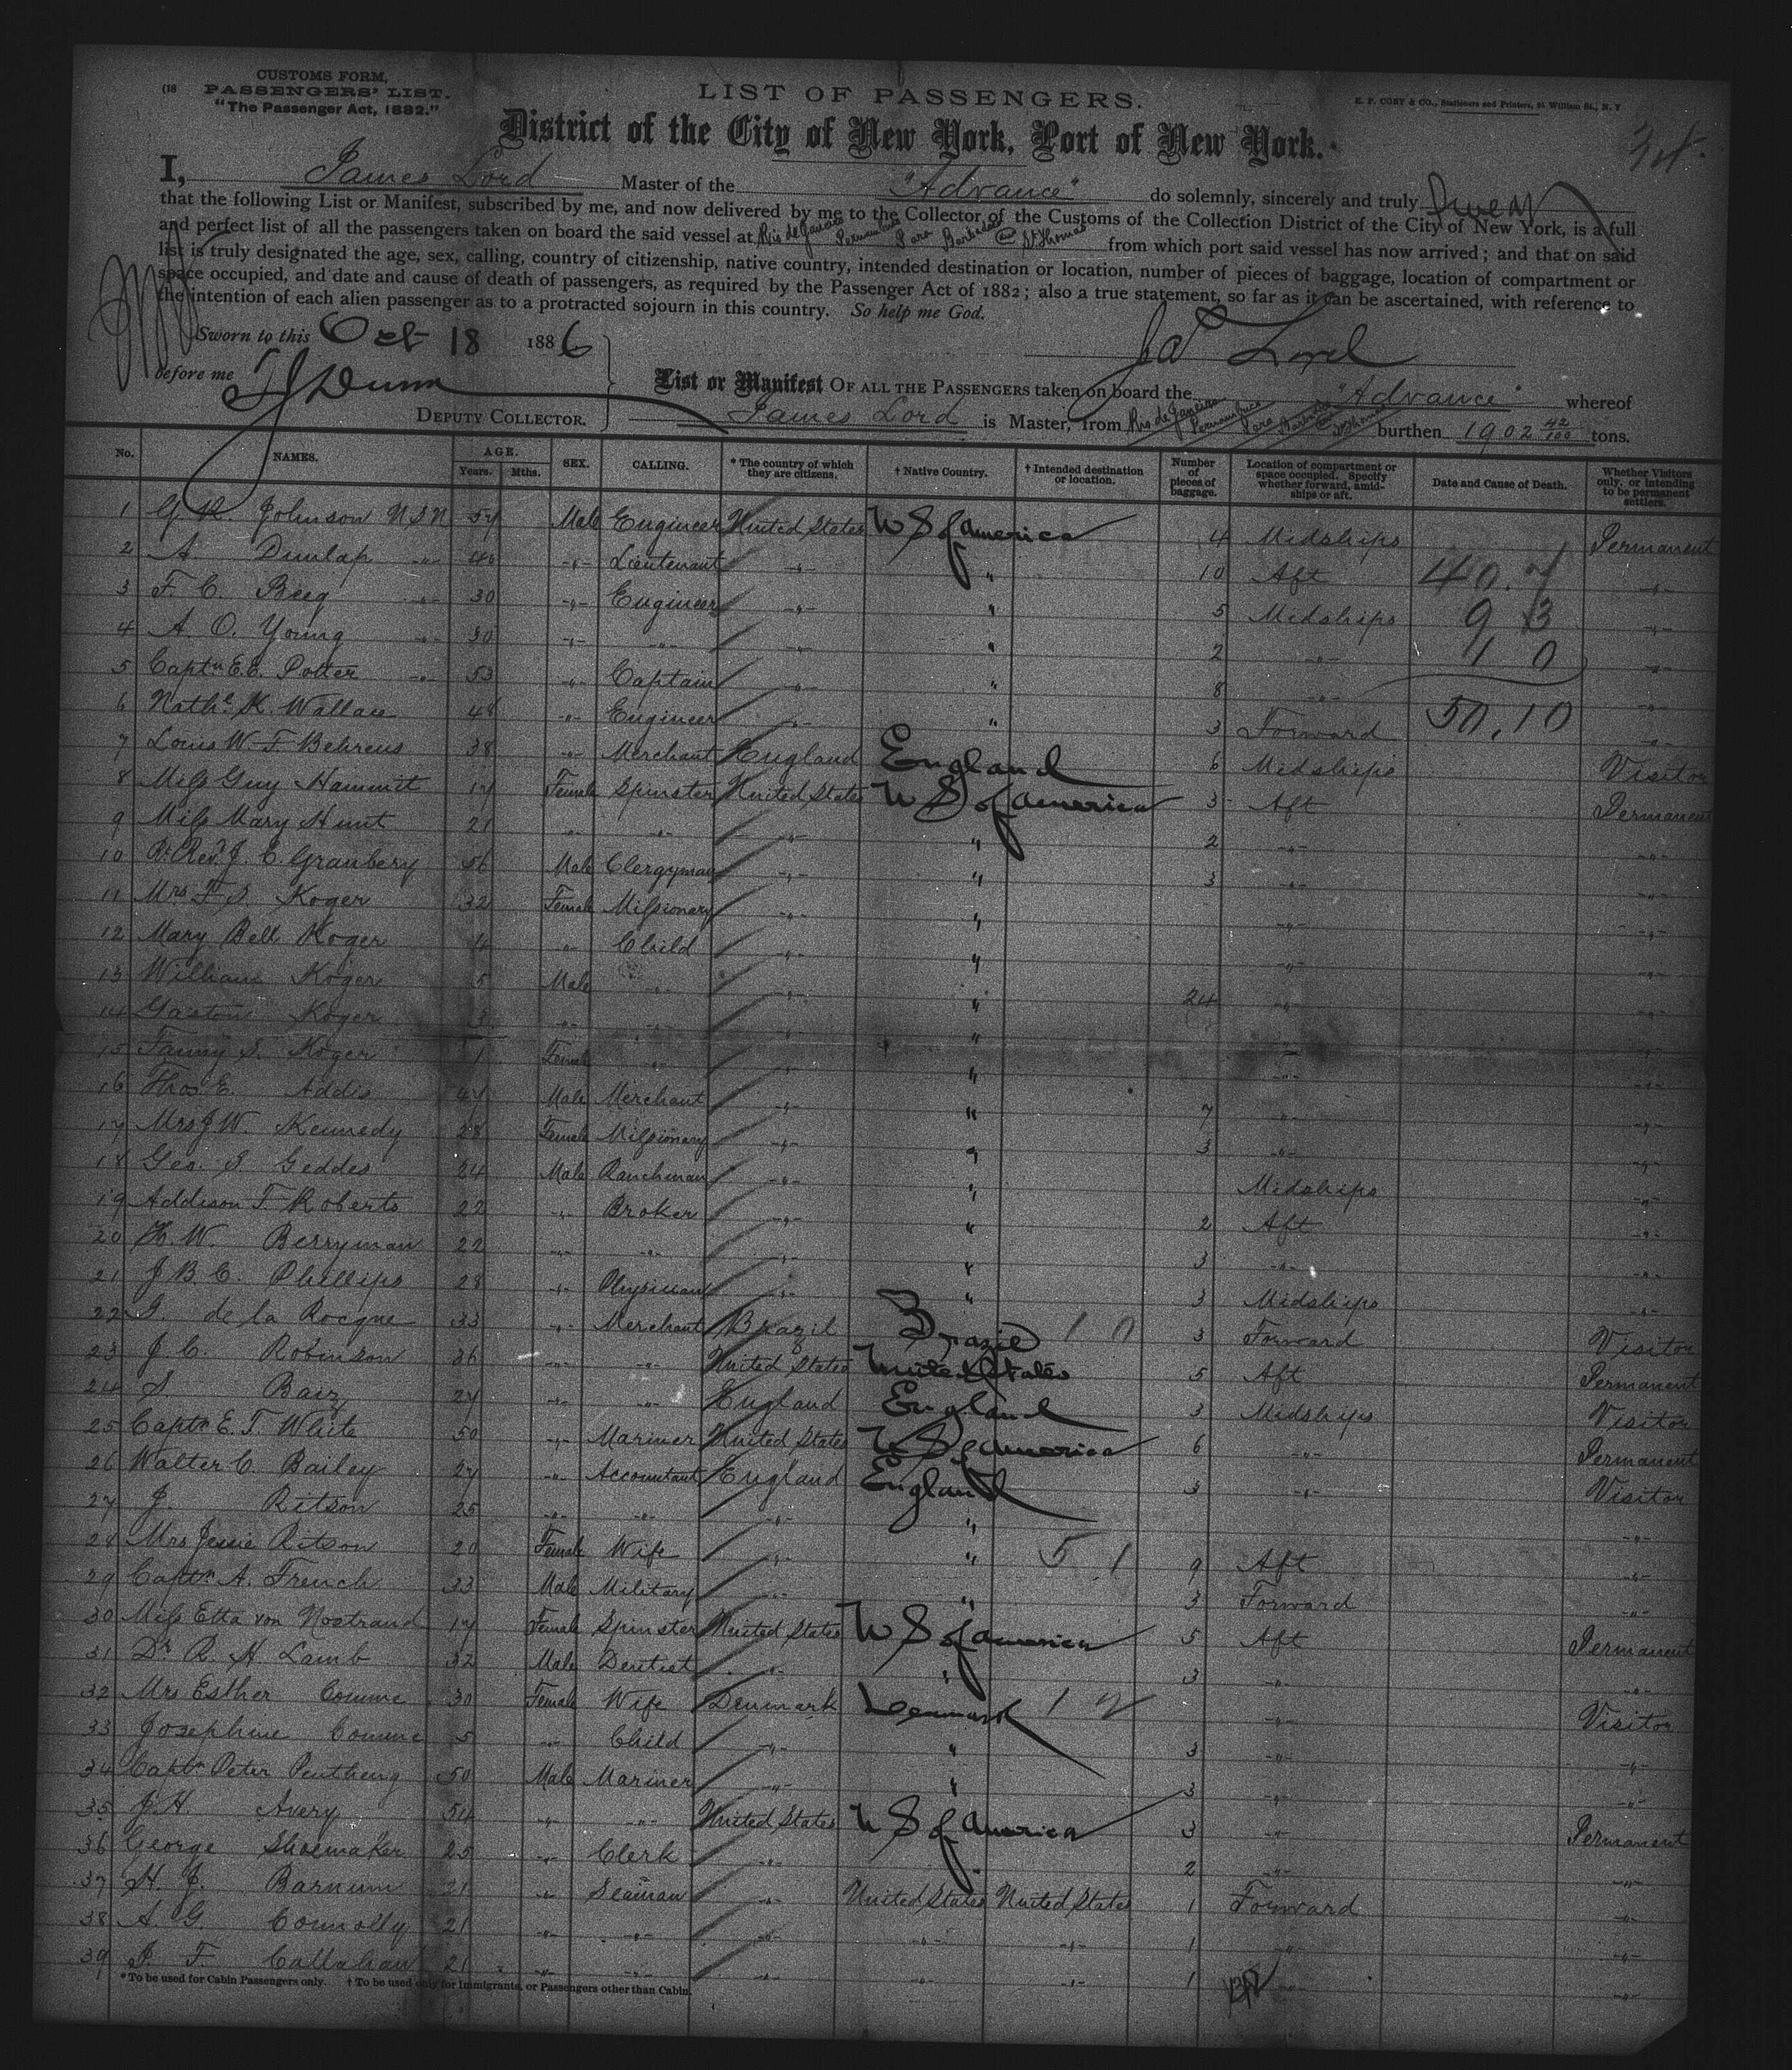 (18
CUSTOMS FORM,
PASSENGERS' LIST.
"The Passenger Act, 1882."
LIST OF PASSENGERS.
E. P. COBY & CO., Stationers and Printers, 54 William St., N. Y
District of the City of New York, Port of New York.
I, James Lord Master of the "Advance" do solemnly, sincerely and truly swear
that the following List or Manifest, subscribed by me, and now delivered by me to the Collector of the Customs of the Collection District of the City of New York, is a full
and perfect list of all the passengers taken on board the said vessel at Rio de Janeiro Pernambuco Para Barbados and St Thomas from which port said vessel has now arrived; and that on said
list is truly designated the age, sex, calling, country of citizenship, native country, intended destination or location, number of pieces of baggage, location of compartment or
space occupied, and date and cause of death of passengers, as required by the Passenger Act of 1882; also a true statement, so far as it can be ascertained, with reference to
the intention of each alien passenger as to a protracted sojourn in this country. So help me God.
Sworn to this Oct 18 1886
Jas Lord
before me Dunn
DEPUTY COLLECTOR.
List or Manifest OF ALL THE PASSENGERS taken on board the "Advance" whereof
James Lord is Master, from Rio de Janeiro Pernambuco Para Barbados and St Thomas burthen 1902 42/100 tons.
No. NAMES. AGE. Years. Mths. SEX. CALLING. * The country of which they are citizens. † Native Country. † Intended destination or location. Number of pieces of baggage. Location of compartment or space occupied. Specify whether forward, amidships or aft. Date and Cause of Death. Whether Visitors only, or intending to be permanent settlers.
1 G. R. Johnson U S N 54 Male Engineer United States U S of America 4 Midships Permanent
2 A. Dunlap -"- 40 -"- Lieutenant -"- " 10 Aft 40.7 -"-
3 F. C. Bieg -"- 30 -"- Engineer -"- " 5 Midships 9 3 -"-
4 A. O. Young -"- 30 -"- -"- -"- " 2 -"- 1 0 -"-
5 Captn E. E. Potter -"- 53 -"- Captain -"- " 8 -"- -"-
6 Nathl K. Wallace 48 -"- Engineer -"- " 3 Forward 50.10 -"-
7 Louis W. F. Behrens 38 -"- Merchant England England 6 Midships Visitor
8 Miss Guy Hammit 17 Female Spinster United States U S of America 3 Aft Permanent
9 Miss Mary Hunt 21 -"- -"- -"- " 2 -"- -"-
10 Rt. Revd J. C. Granbery 56 Male Clergyman -"- " 3 -"- -"-
11 Mrs F. S. Koger 32 Female Missionary -"- " -"- -"-
12 Mary Bell Koger -"- Child -"- " -"- -"-
13 William Koger 5 Male -"- -"- " 24 -"- -"-
14 Gastone Koger 3 -"- -"- -"- " -"- -"-
15 Fanny S. Koger 1 Female -"- -"- " -"- -"-
16 Thos. E. Addis 47 Male Merchant -"- " 7 -"- -"-
17 Mrs J. W. Kennedy 28 Female Missionary -"- " 3 -"- -"-
18 Geo. S. Geddes 24 Male Ranchman -"- " Midships -"-
19 Addison T. Roberts 22 -"- Broker -"- " 2 Aft -"-
20 H. W. Berryman 22 -"- -"- -"- " 3 -"- -"-
21 J. B. C. Phillips 28 -"- Physician -"- " 3 Midships -"-
22 G. de la Rocque 33 -"- Merchant Brazil Brazil 1 0 3 Forward Visitor
23 J. C. Robinson 36 -"- -"- United States United States 5 Aft Permanent
24 S. Baiz 27 -"- -"- England England 3 Midships Visitor
25 Captn E. T. White 50 -"- Mariner United States U S of America 6 -"- Permanent
26 Walter C. Bailey 27 -"- Accountant England England 3 -"- Visitor
27 J. Ritson 25 -"- -"- -"- " -"-
28 Mrs Jessie Ritson 20 Female Wife -"- " 5 1 9 Aft -"-
29 Captn A. French 33 Male Military -"- " 3 Forward -"-
30 Miss Etta von Nostrand 17 Female Spinster United States U S of America 5 Aft Permanent
31 Dr. R. H. Lamb 32 Male Dentist -"- " 3 -"- -"-
32 Mrs Esther Comme 30 Female Wife Denmark Denmark 1 2 -"- Visitor
33 Josephine Comme 5 -"- Child -"- " 3 -"- -"-
34 Captn Peter Pentheny 50 Male Mariner -"- " 3 -"- -"-
35 J. H. Avery 54 -"- -"- United States U S of America 3 -"- Permanent
36 George Shoemaker 25 -"- Clerk -"- " 2 -"- -"-
37 H. J. Barnum 21 -"- Seaman -"- United States United States 1 Forward -"-
38 A. G. Connolly 21 -"- -"- -"- -"- -"- 1 -"- -"-
39 J. F. Callahan 21 -"- -"- -"- -"- -"- 1 -"- -"-
* To be used for Cabin Passengers only. † To be used only for Immigrants, or Passengers other than Cabin.